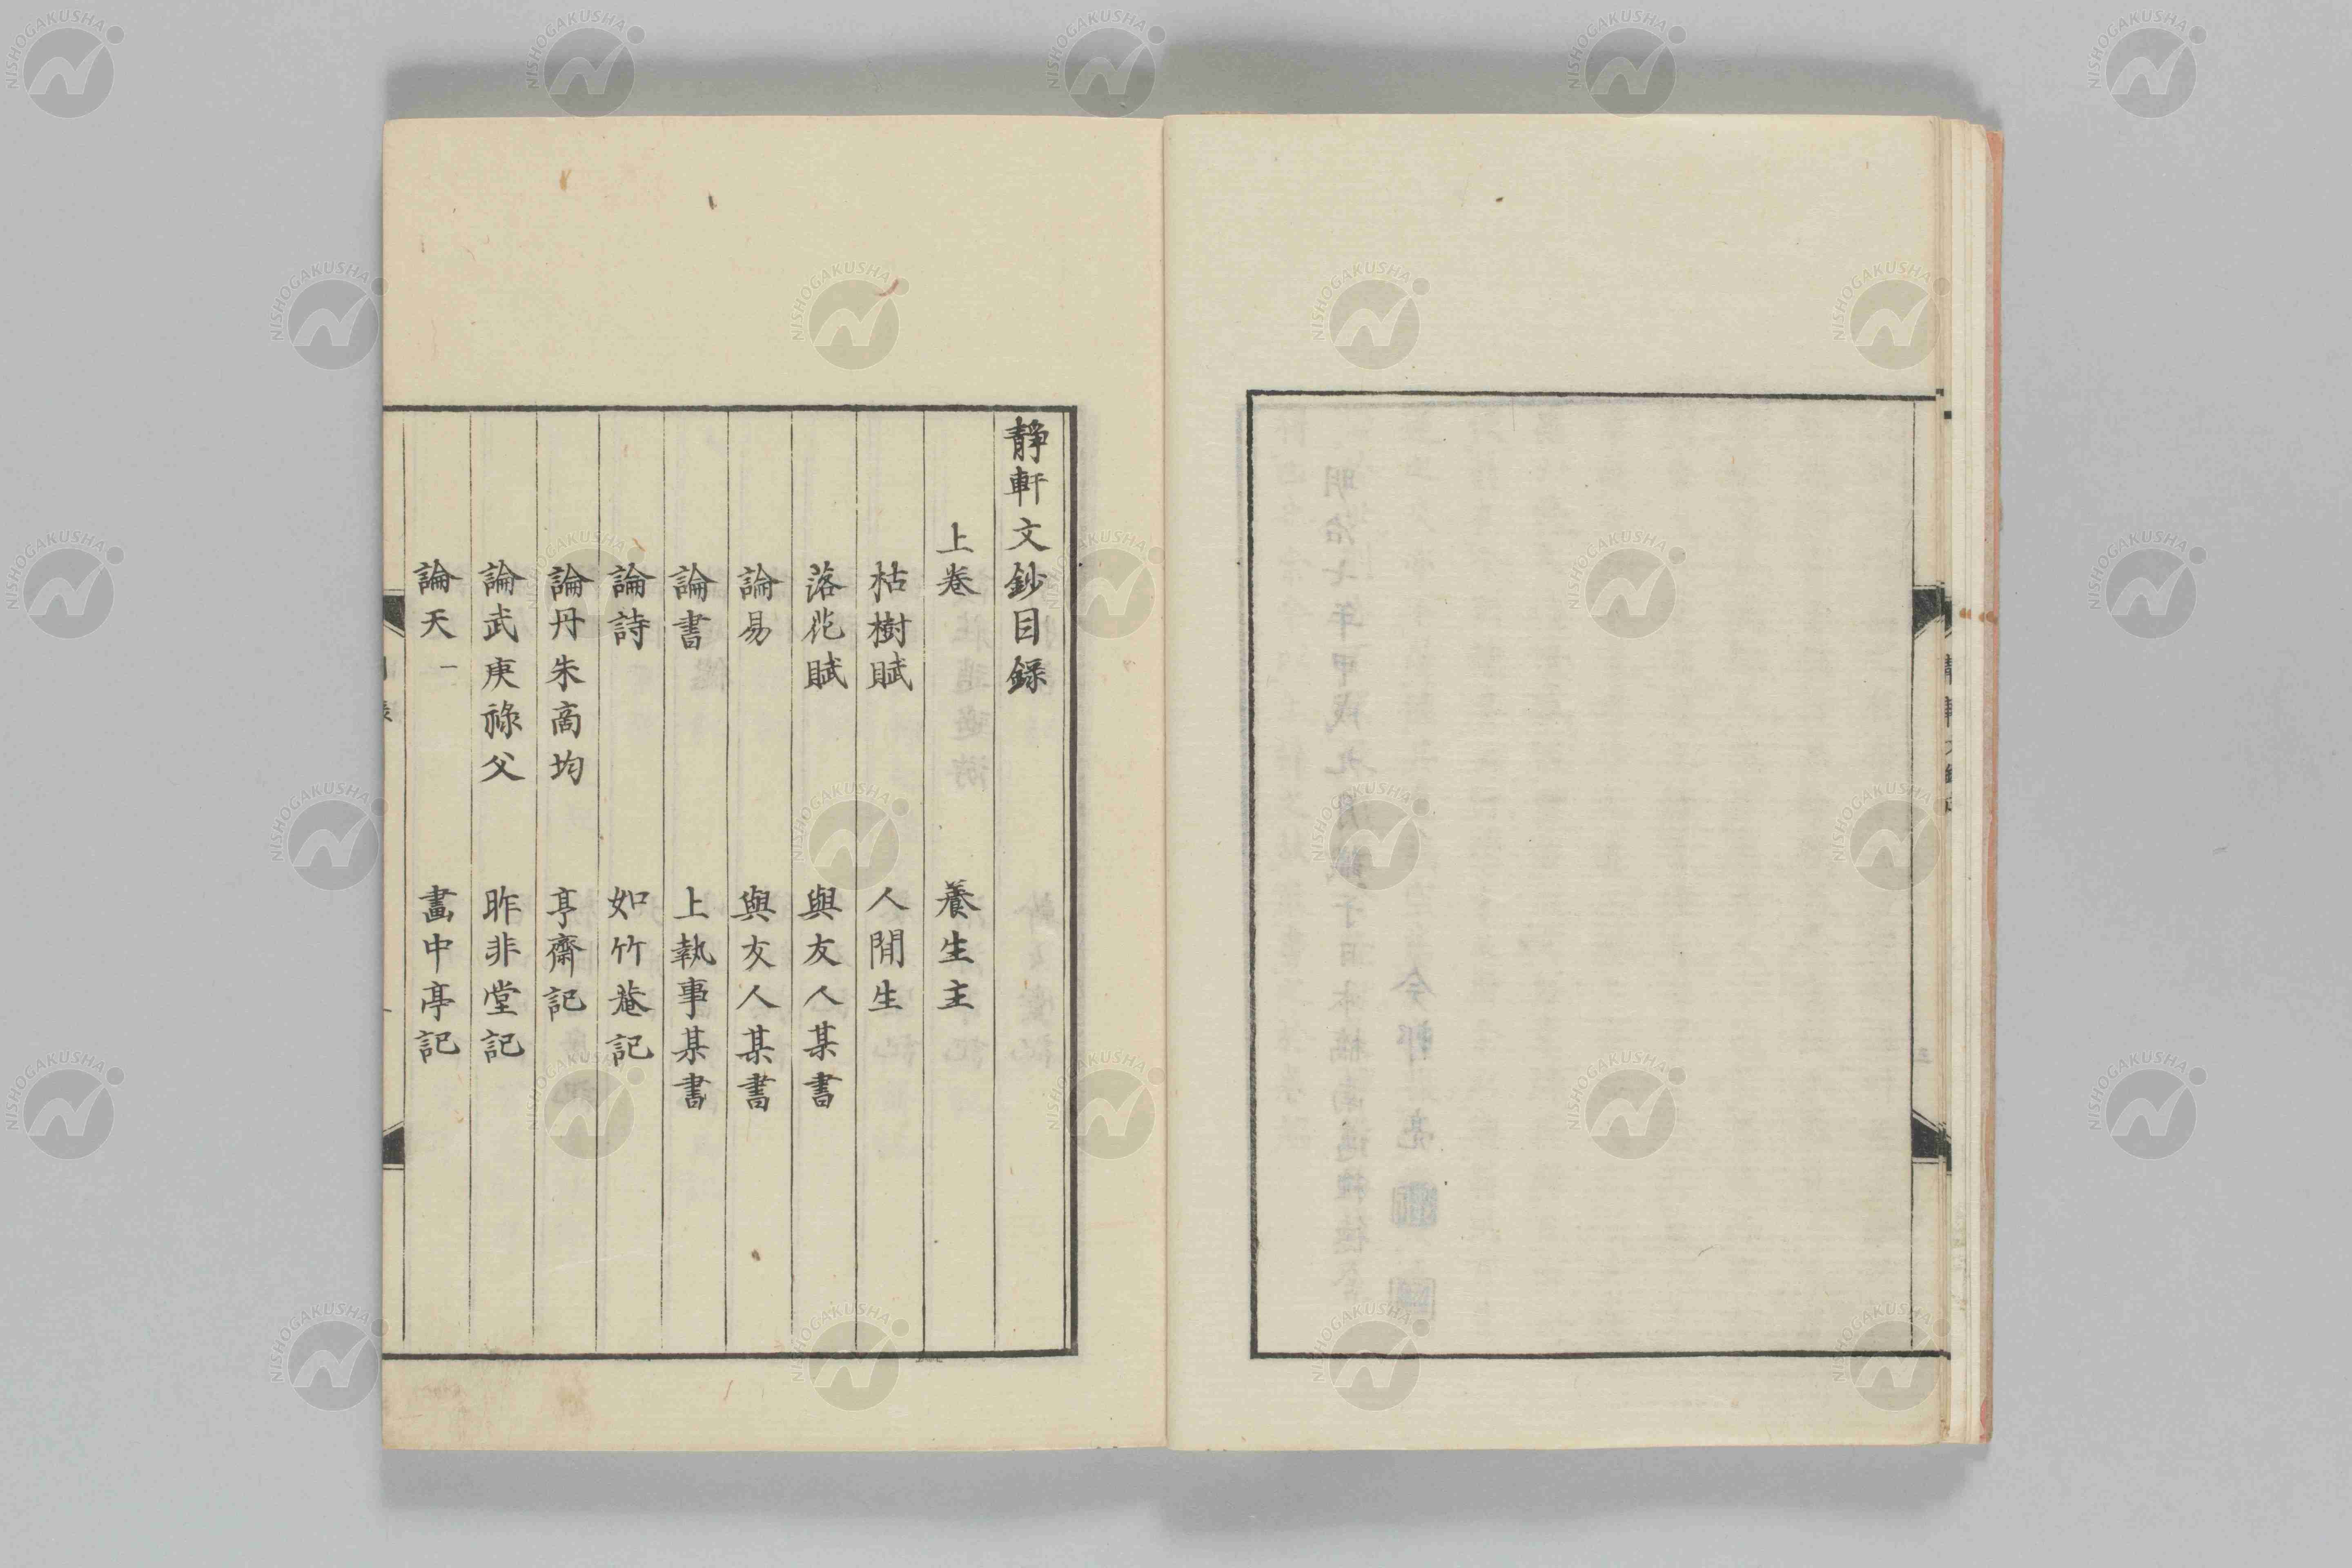 靜軒文鈔目録
上卷
養生主
枯樹賦
人間生
落花賦
與友人某書
論易
與友人某書
論書
上執事某書
論詩
如竹菴記
論丹朱商均
亨齋記
論武庚祿父
昨非堂記
論天一
畫中亭記
NISHOGAKUSHA